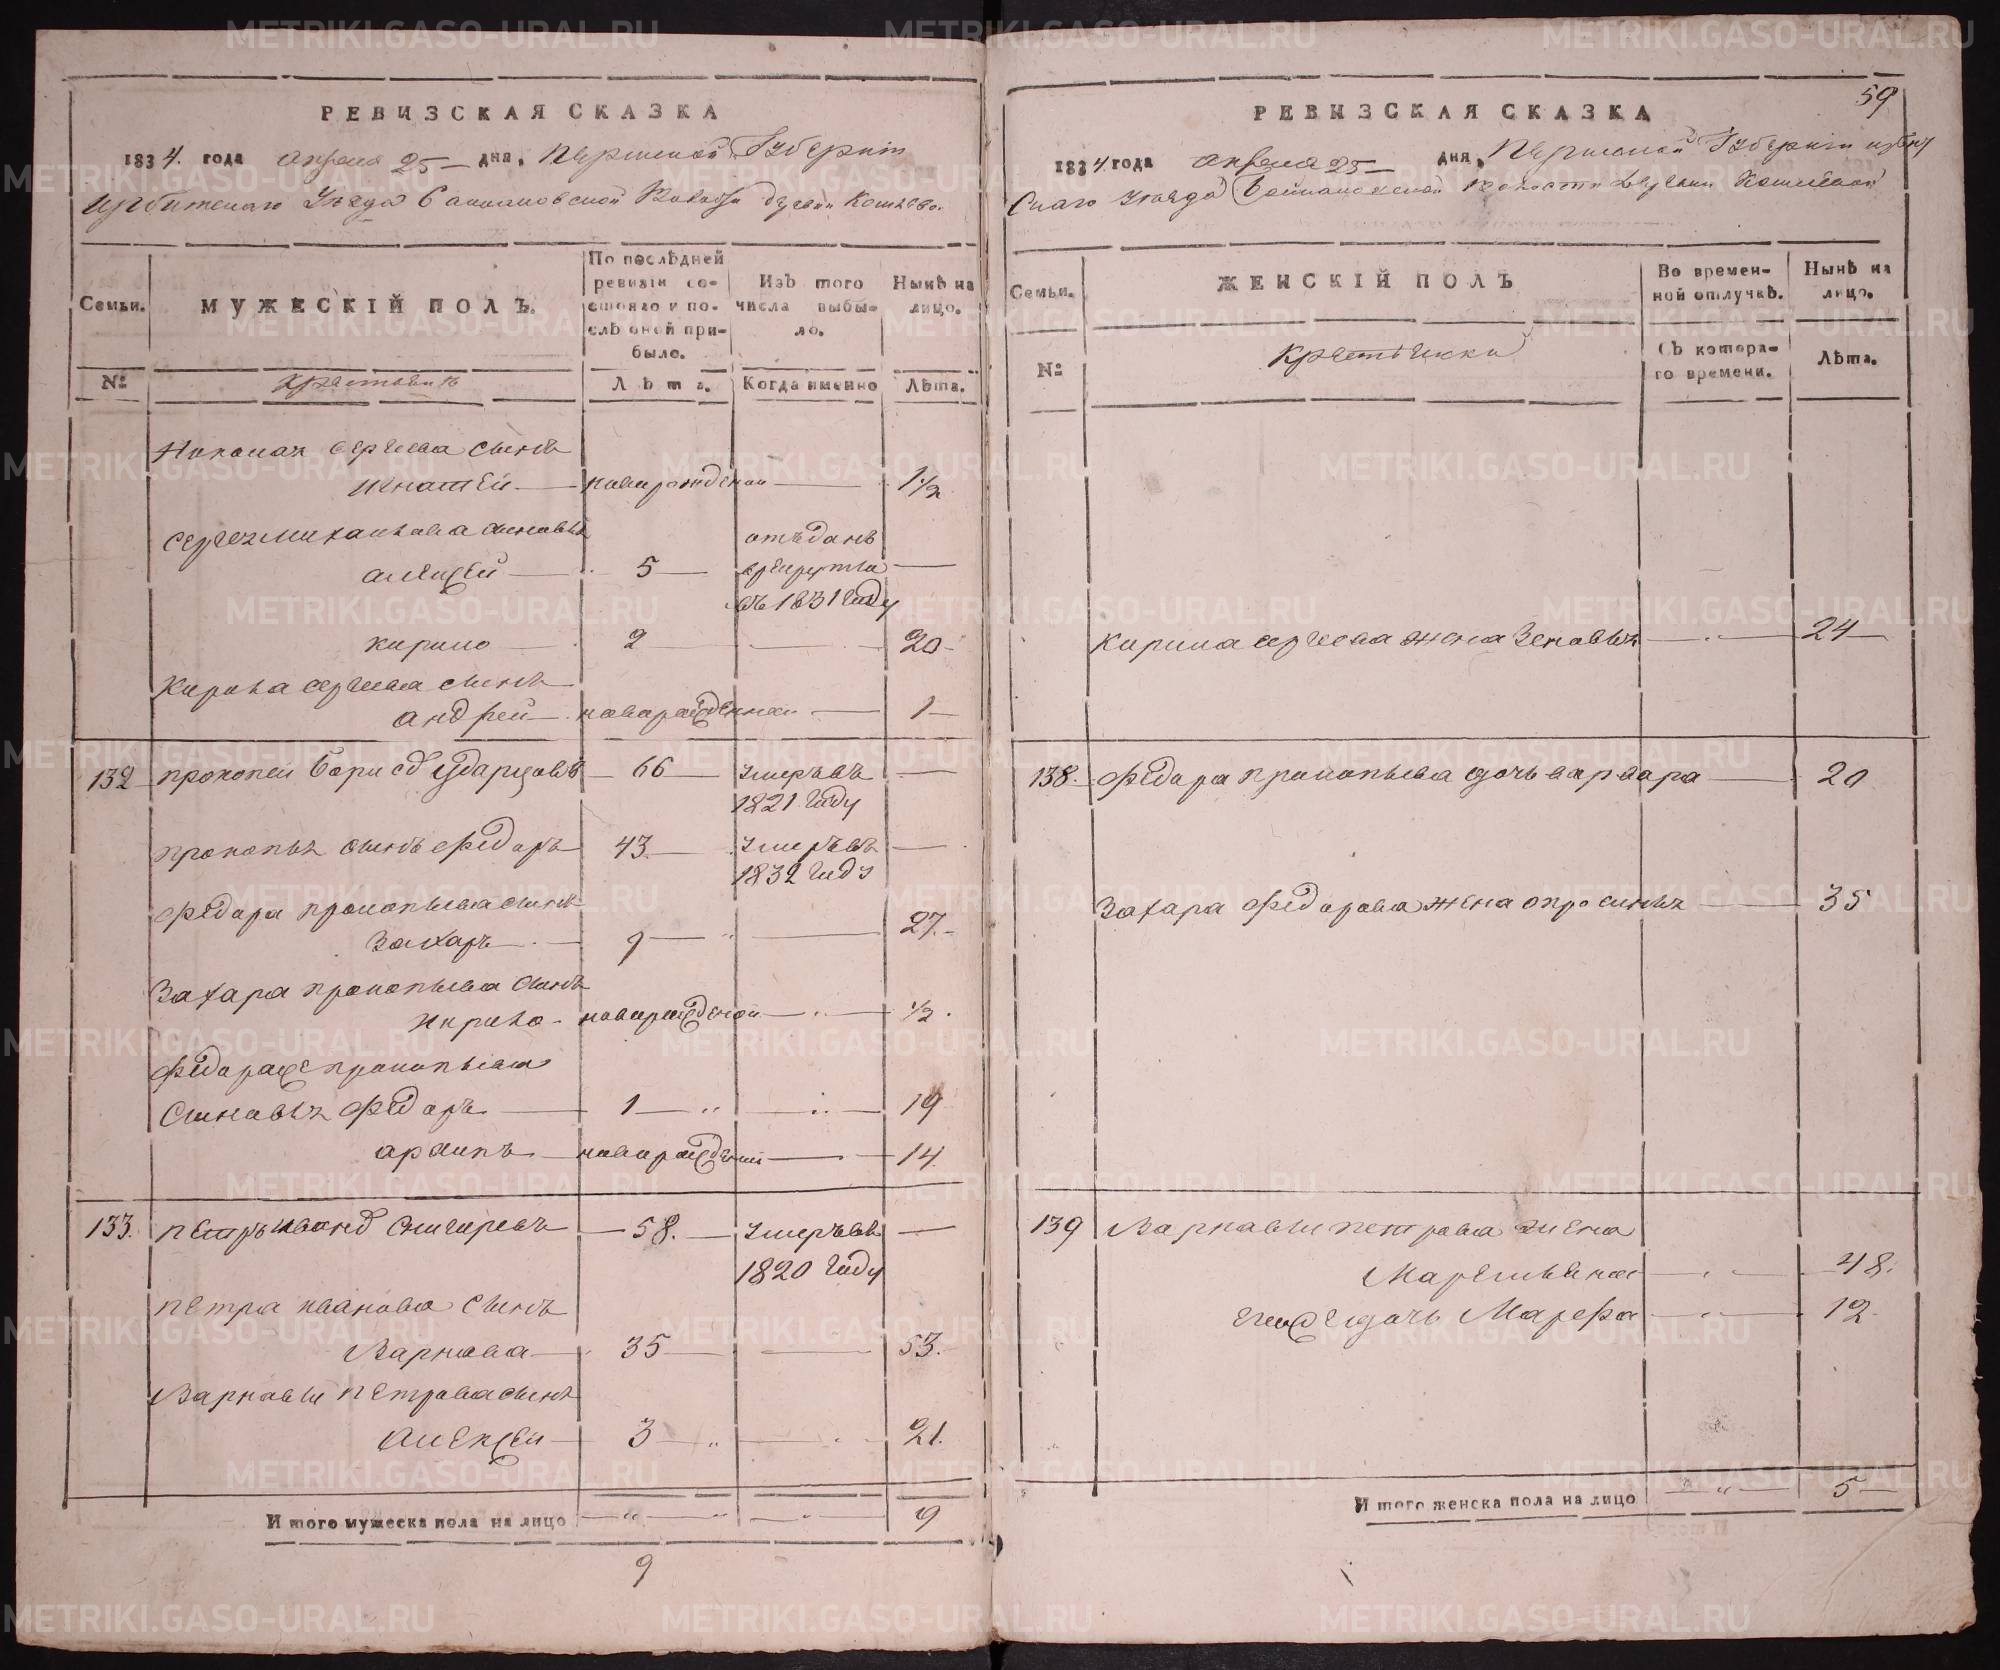 РЕВИЗСКАЯ СКАЗКА
1834. года апреля 25 дня, Пермской Губернiи
Ирбитскаго Уезда Волости
Семьи.
МУЖЕСКIЙ ПОЛЪ.
По послѣдней ревизiи состояло и послѣ оной прибыло.
Изъ того числа выбыло.
Нынѣ на лицо.
№
Лѣта.
Когда именно
Лѣта.
Николая Сергеева сынъ
игнатей новорожденой 1 1/2
Сергея Михаилова сыновья отъданъ
алексей 5 врекруты
въ 1831 году
кирило 2 20
Кирила сергеева сынъ
андрей новорожденной 1
132 прокопей борисов 66 умеръ въ
1821 году
прокопья сынъ федоръ 43 умеръ въ
1832 году
федора прокопьева сынъ
Захаръ 9 27
Захара прокопьева сынъ
кирило новорожденой 1/2
федора же прокопьева
Сыновья федоръ 1 19
архипъ новорожденой 14
133. петръ иванов снигиревъ 58. умеръ въ
1820 году
петра иванова сынъ
Варнава 35 53.
Варнавы петрова сынъ
алексей 3 21.
Итого мужеска пола на лицо 9
9
59
РЕВИЗСКАЯ СКАЗКА
1834 года апреля 25 дня, Пермской Губернiи ирбит
скаго уезда волости деревни
Семьи.
ЖЕНСКIЙ ПОЛЪ
Во временной отлучкѣ.
Нынѣ на лицо.
№
Съ котораго времени.
Лѣта.
кирила сергеева жена Зеновья 24
138. федора прокопьева дочь варвара 20
Захара федорова жена апросинья 35
139 Варнавы петрова жена
Маремьяна 48.
его же дочь Марфа 12
Итого женска пола на лицо 5
METRIKI.GASO-URAL.RU